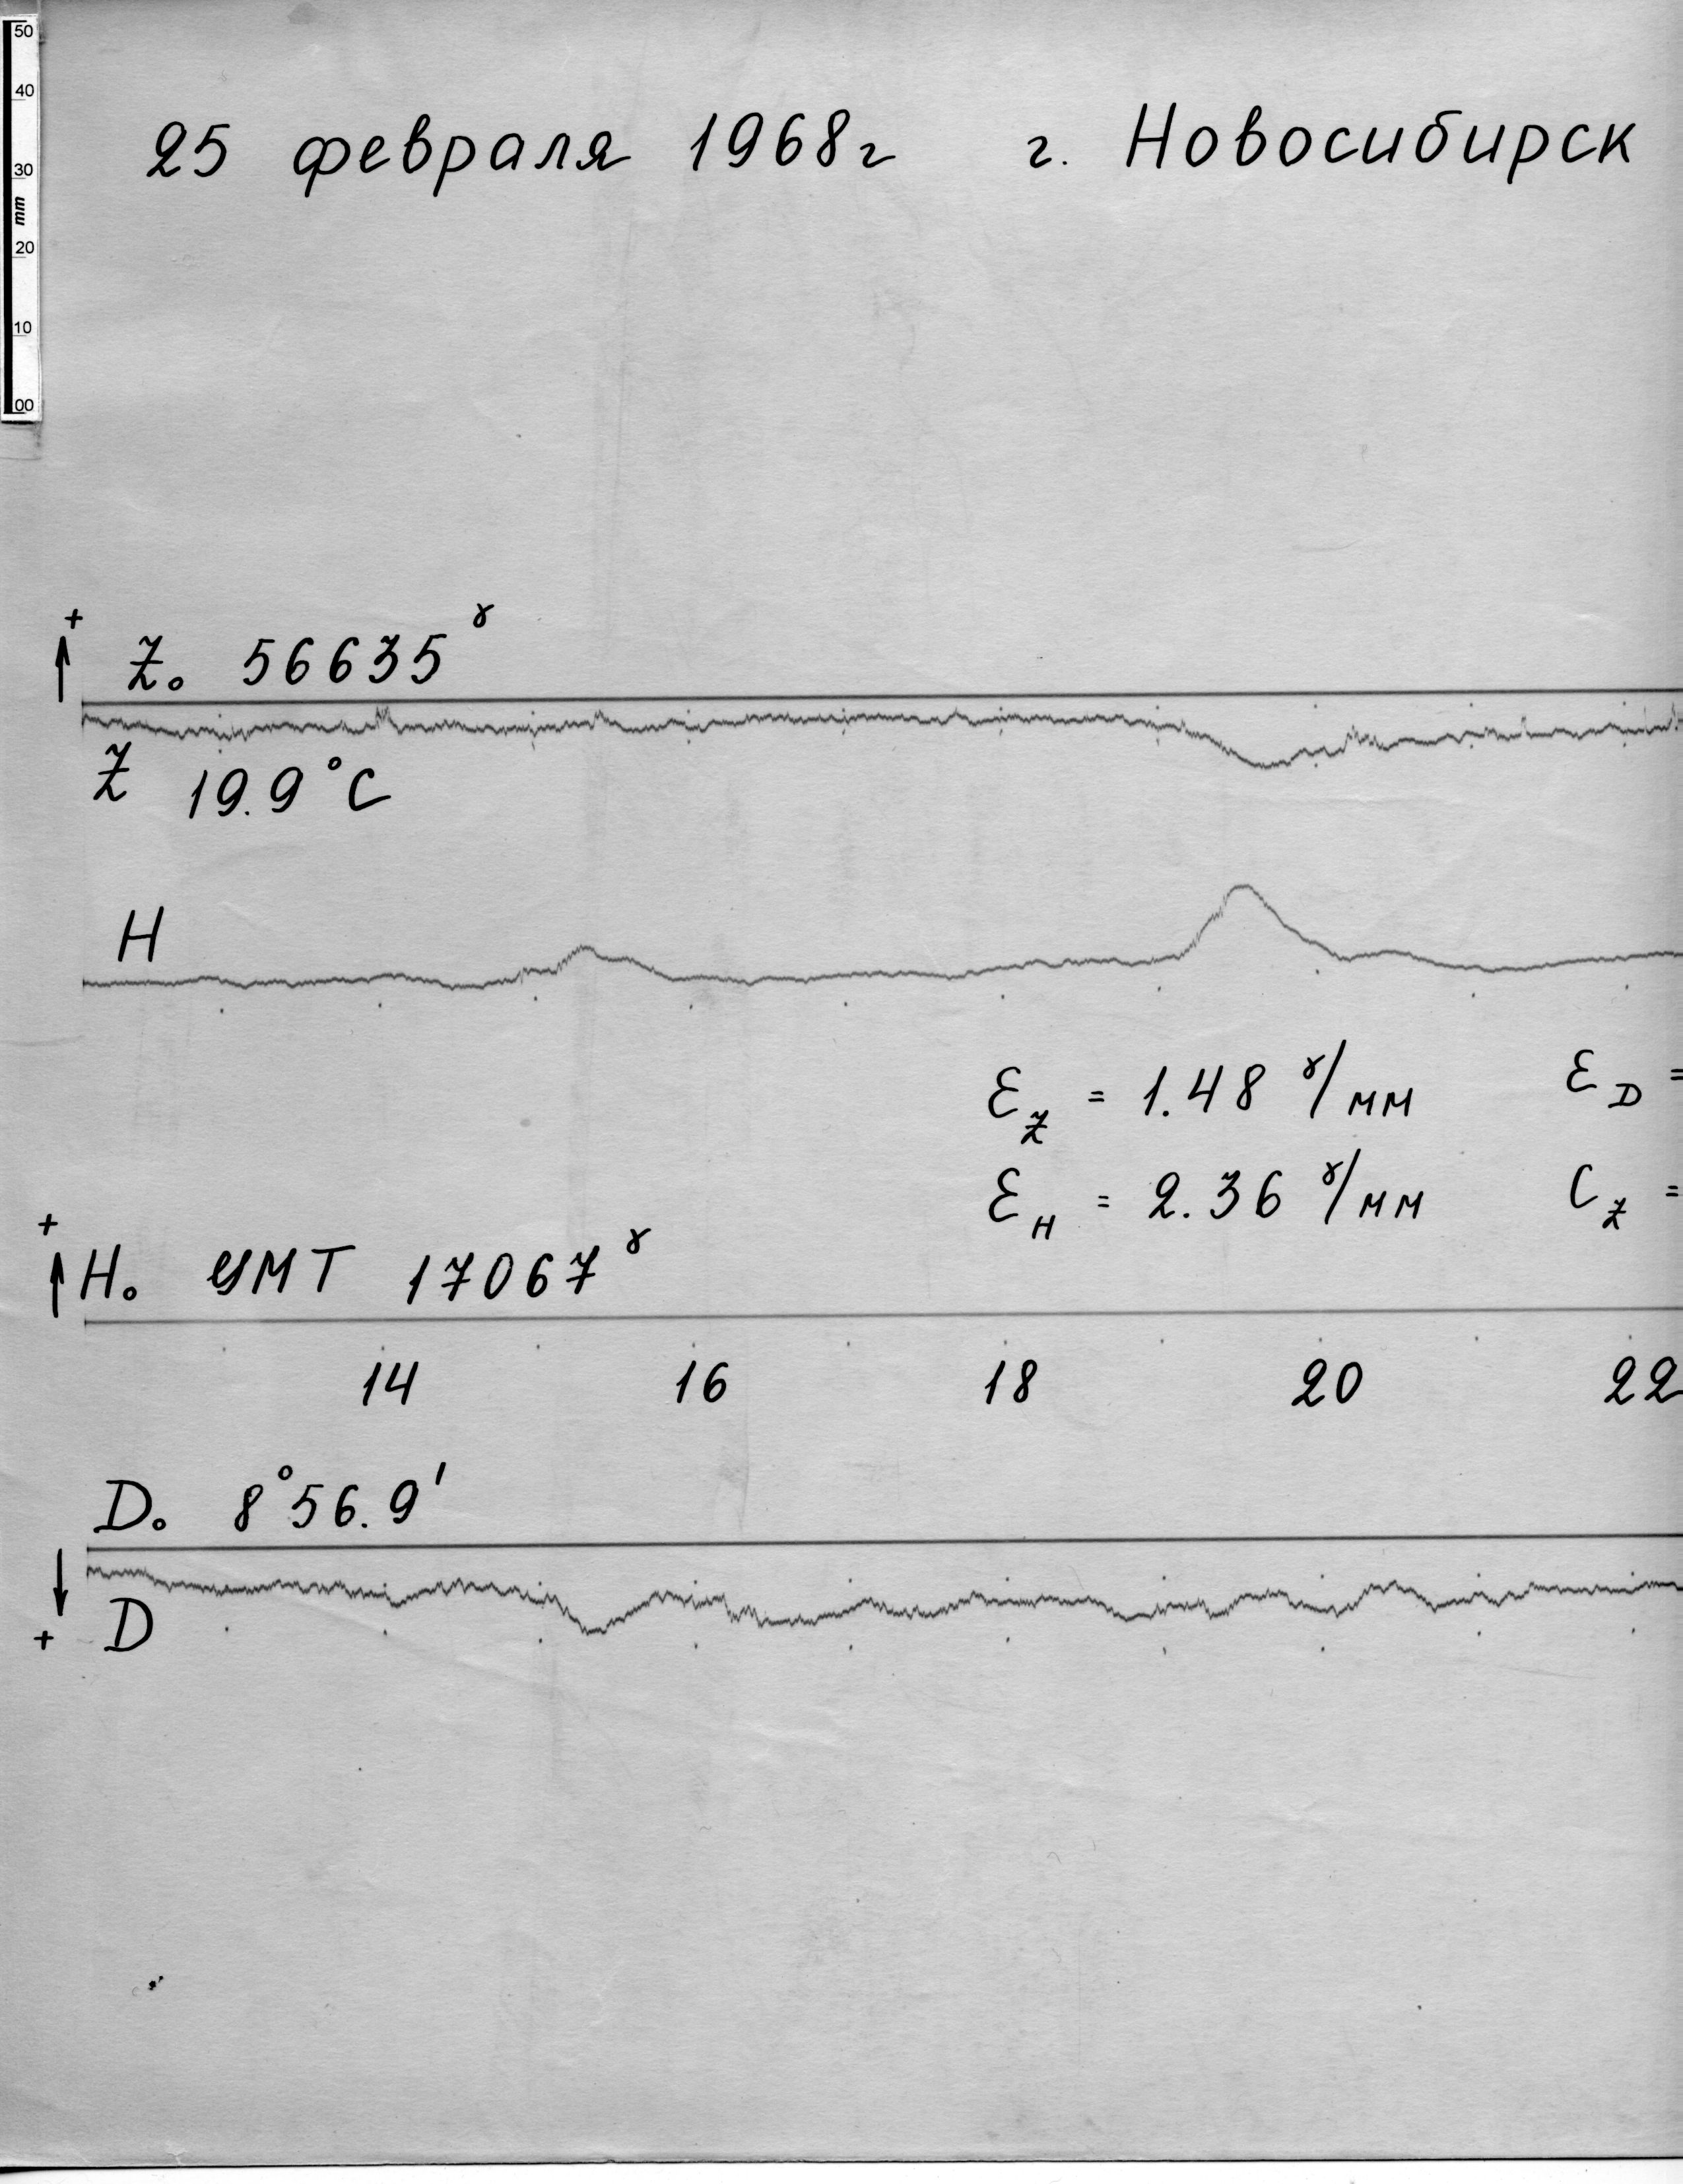 50
40
30
mm
20
10
00
25 февраля 1968г г. Новосибирск
+
Z₀ 56635ᵞ
Z 19.9°C
H
Ɛ_Z = 1.48 ᵞ/мм Ɛ_D =
Ɛ_H = 2.36 ᵞ/мм C_Z =
+
H₀ УМТ 17067ᵞ
14 16 18 20 22
D₀ 8°56.9'
+ D